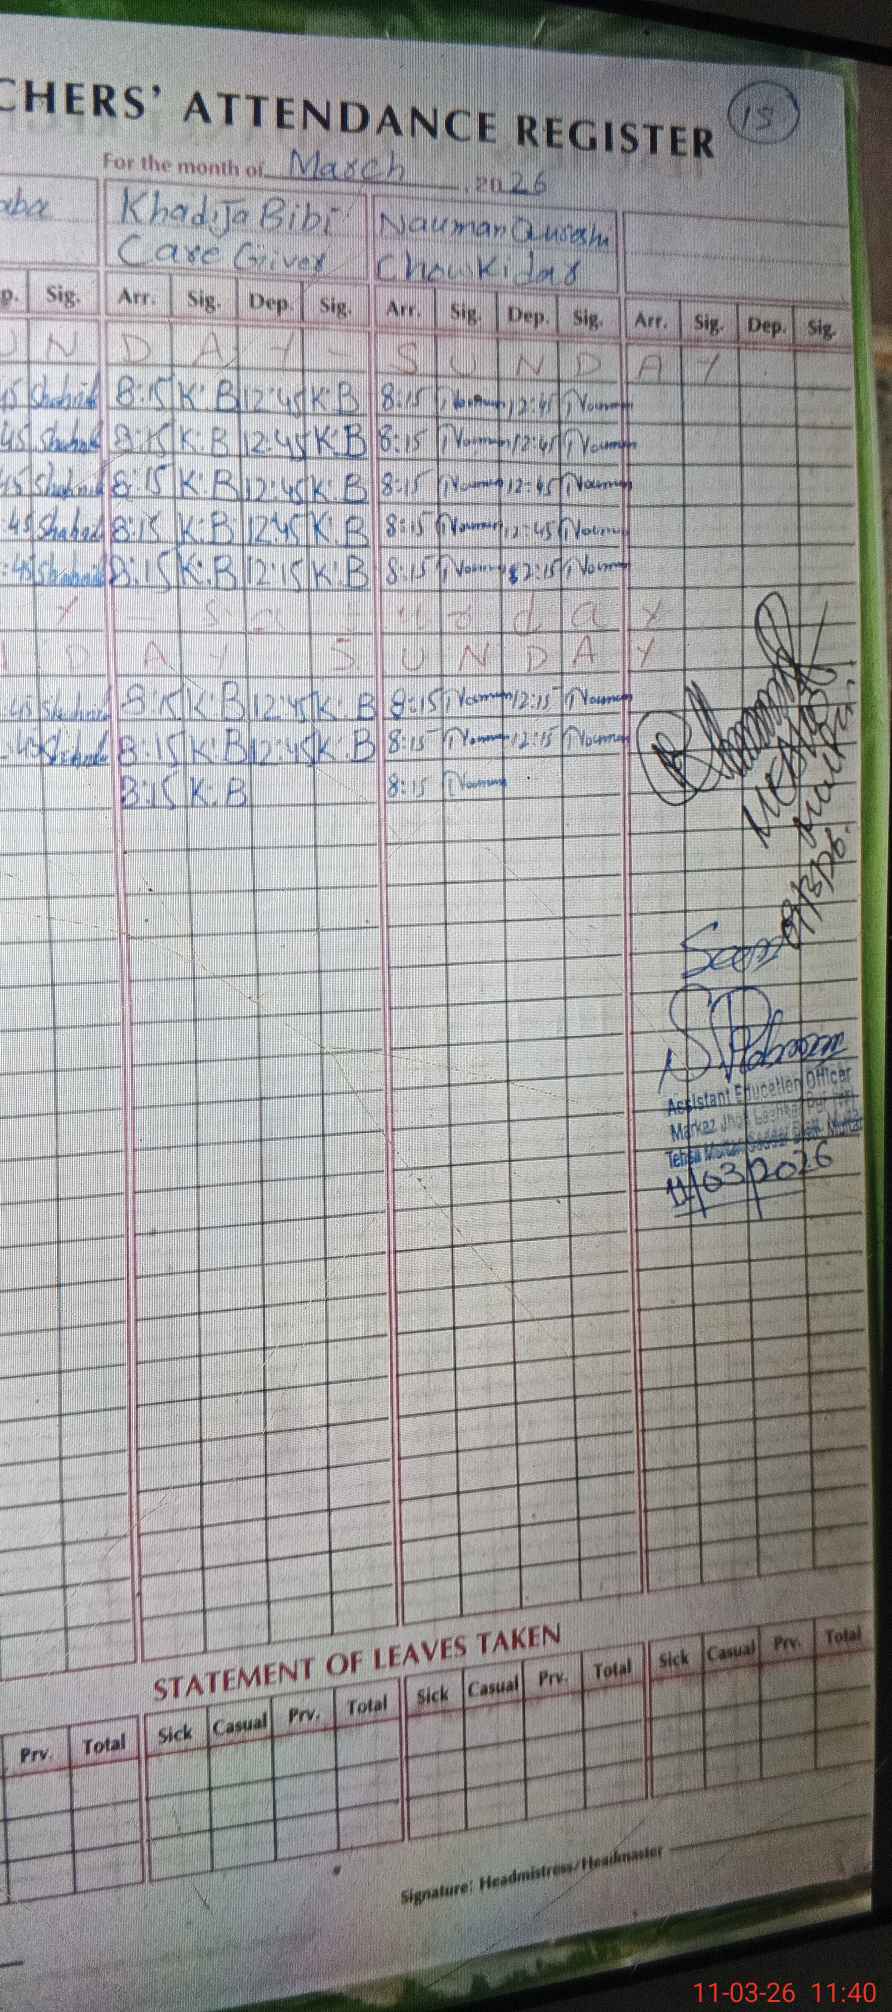 CHERS' ATTENDANCE REGISTER
15
For the month of March 2026
Khadija Bibi
Care Giver
Nauman Qureshi
Chowkidar
p. Sig. Arr. Sig. Dep. Sig. Arr. Sig. Dep. Sig. Arr. Sig. Dep. Sig.
U N D A Y - S U N D A Y
45 Shahid 8:15 K.B 12:45 K.B 8:15 Nauman 12:45 Nauman
45 Shahid 8:15 K.B 12:45 K.B 8:15 Nauman 12:45 Nauman
45 Shahid 8:15 K.B 12:45 K.B 8:15 Nauman 12:45 Nauman
:45 Shahid 8:15 K.B 12:45 K.B 8:15 Nauman 12:45 Nauman
:45 Shahid 8:15 K.B 12:15 K.B 8:15 Nauman 12:15 Nauman
Y S a t u r d a y
D A Y S U N D A Y
:45 Shahid 8:15 K.B 12:45 K.B 8:15 Nauman 12:15 Nauman
:45 Shahid 8:15 K.B 12:45 K.B 8:15 Nauman 12:15 Nauman
8:15 K.B 8:15 Nauman
Seen
Assistant Education Officer
Markaz
11/03/2026
STATEMENT OF LEAVES TAKEN
Prv. Total Sick Casual Prv. Total Sick Casual Prv. Total Sick Casual Prv. Total
Signature: Headmistress/Headmaster
11-03-26 11:40